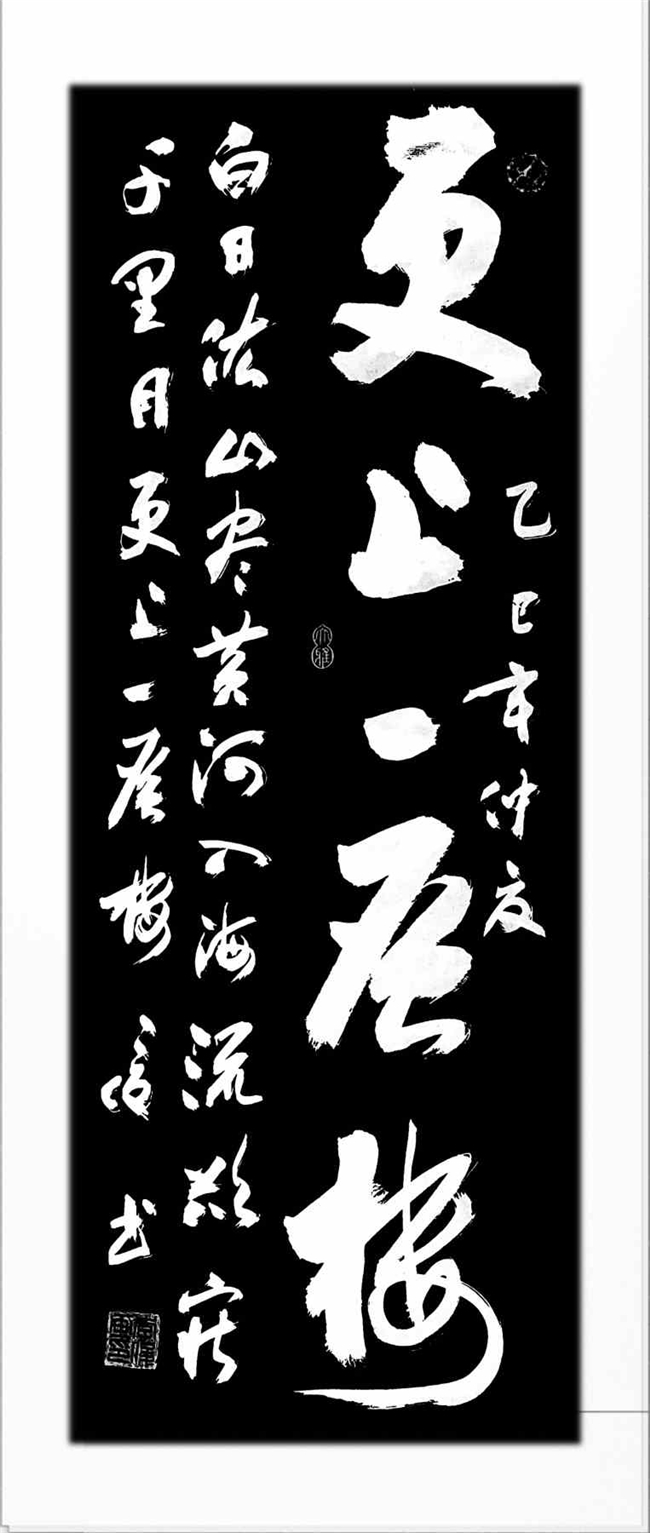 乙巳年仲夏
更上一层楼
大雅
白日依山尽黄河入海流欲穷
千里目更上一层楼 书